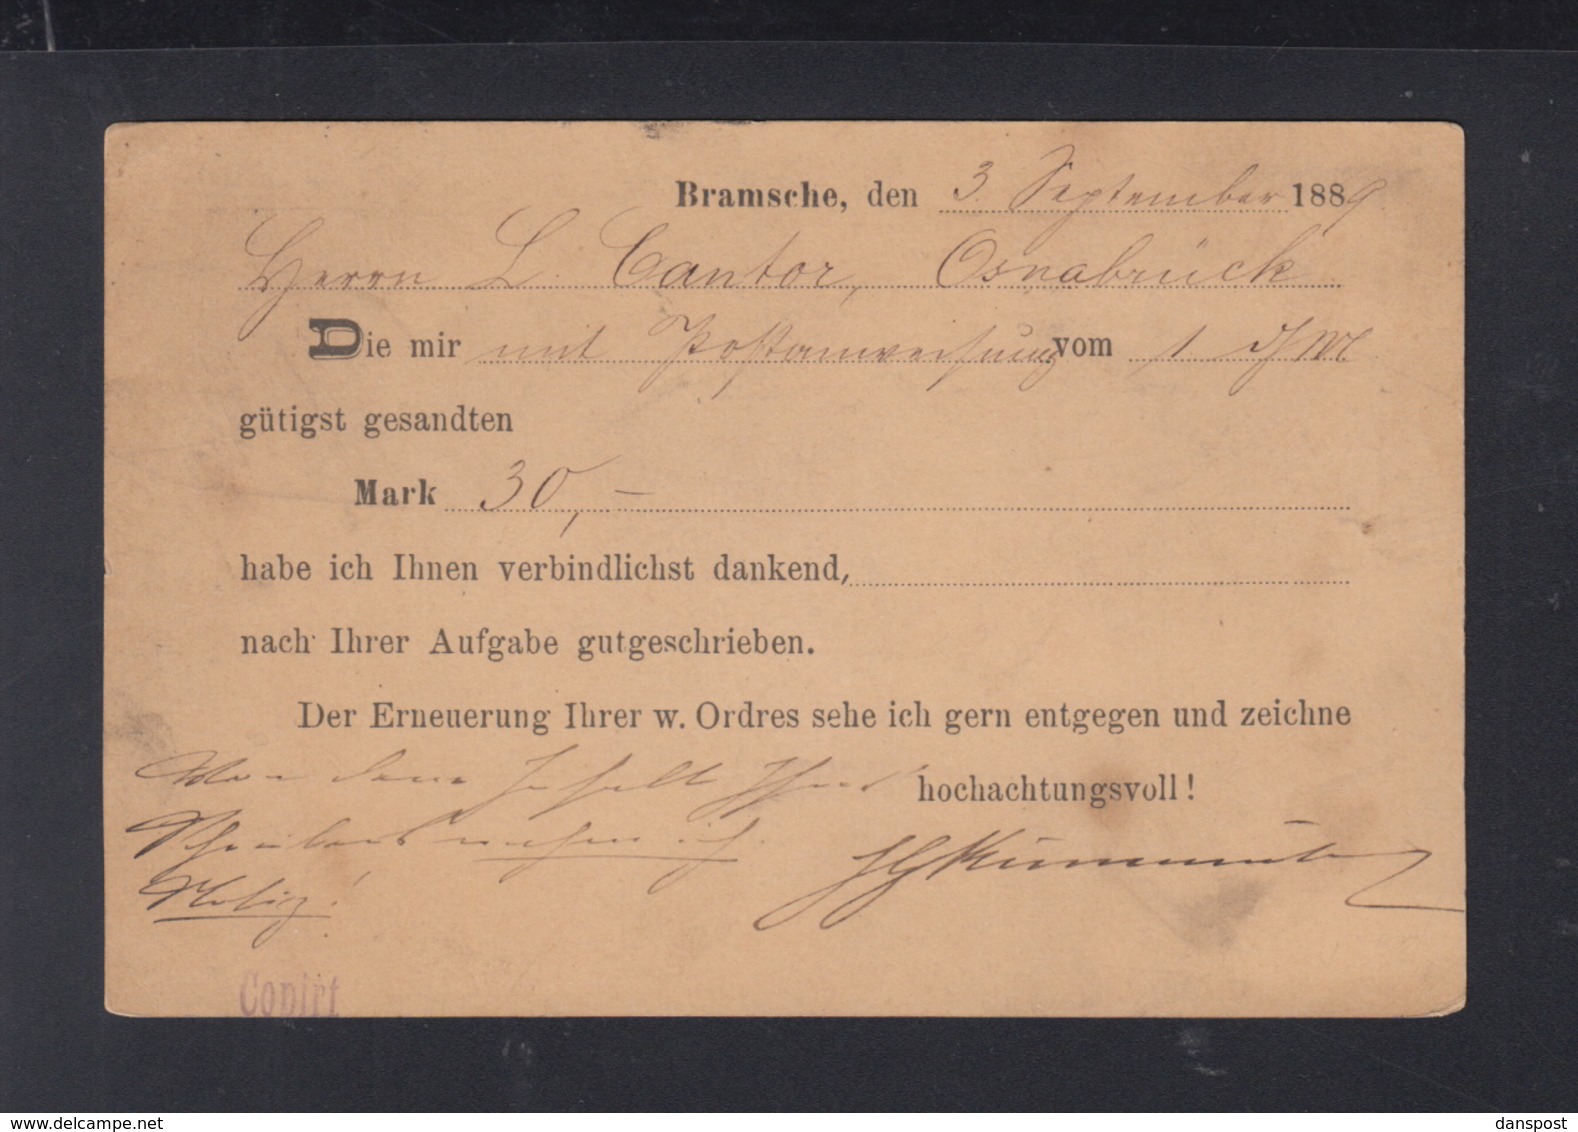 Bramsche, den 3. September 1889.
Herrn L. Cantor, Osnabrück
Die mir mit Postanweisung vom 1 d/M.
gütigst gesandten
Mark 30,–
habe ich Ihnen verbindlichst dankend,
nach Ihrer Aufgabe gutgeschrieben.
Der Erneuerung Ihrer w. Ordres sehe ich gern entgegen und zeichne
hochachtungsvoll!
Von dem Inhalt Ihres
Schreibens nahm ich
Notiz!
Copirt
www.delcampe.net
danspost